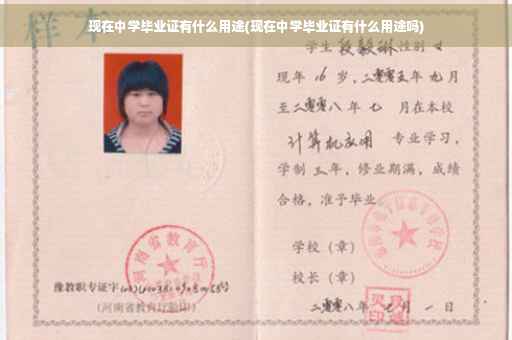 现在中学毕业证有什么用途(现在中学毕业证有什么用途吗)
样本
学生段毅琳性别女
现年 16 岁,二零零五年九月
至二零零八年七 月在本校
计算机应用 专业学习,
学制三年,修业期满,成绩
合格,准予毕业
学校(章)
校长(章)
二零零八年七月一日
河南省教育厅
豫教职专证字
(河南省教育厅验印)